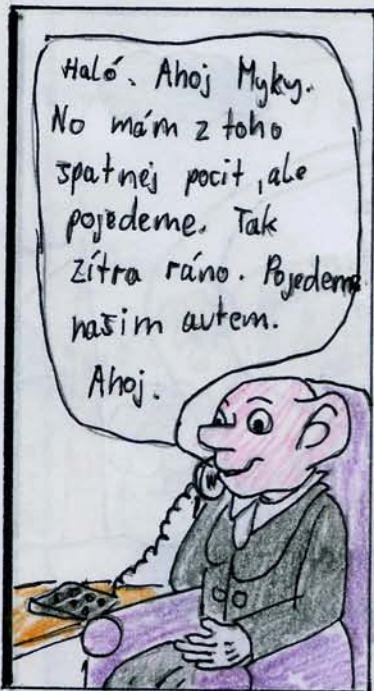 Haló. Ahoj Myky.
No mám z toho
špatnej pocit, ale
pojedeme. Tak
zítra ráno. Pojedeme
našim autem.
Ahoj.